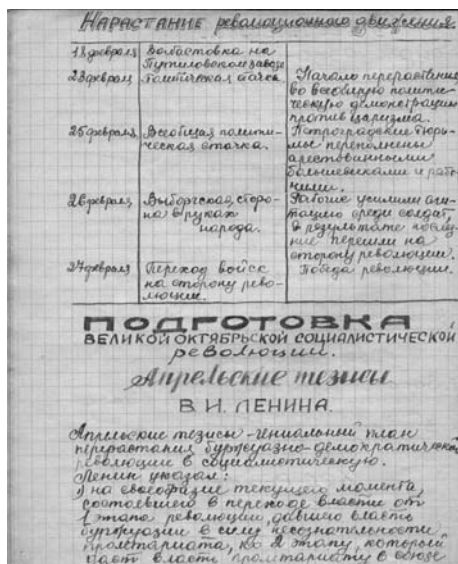 Нарастание революционного движения.
18 февраля Забастовка на
Путиловском заводе
23 февраля Политическая стачка. Начало перерастания
во всеобщую полити-
ческую демонстрацию
против царизма.
25 февраля Всеобщая полити- Петроградские тюрь-
ческая стачка. мы переполнены
арестованными
большевиками и рабо-
чими.
26 февраля Выборгская сторо- Рабочие усилили аги-
на в руках тацию среди солдат,
народа. в результате послед-
ние перешли на
сторону революции.
27 февраля Переход войск Победа революции.
на сторону рево-
люции.
ПОДГОТОВКА
ВЕЛИКОЙ ОКТЯБРЬСКОЙ СОЦИАЛИСТИЧЕСКОЙ
революции.
Апрельские тезисы
В. И. ЛЕНИНА.
Апрельские тезисы - гениальный план
перерастания буржуазно-демократической
революции в социалистическую.
Ленин указал:
1) на своеобразие текущего момента,
состоявшего в переходе власти от
1 этапа революции, давшего власть
буржуазии в силу несознательности
пролетариата, ко 2 этапу, который
даст власть пролетариату в союзе